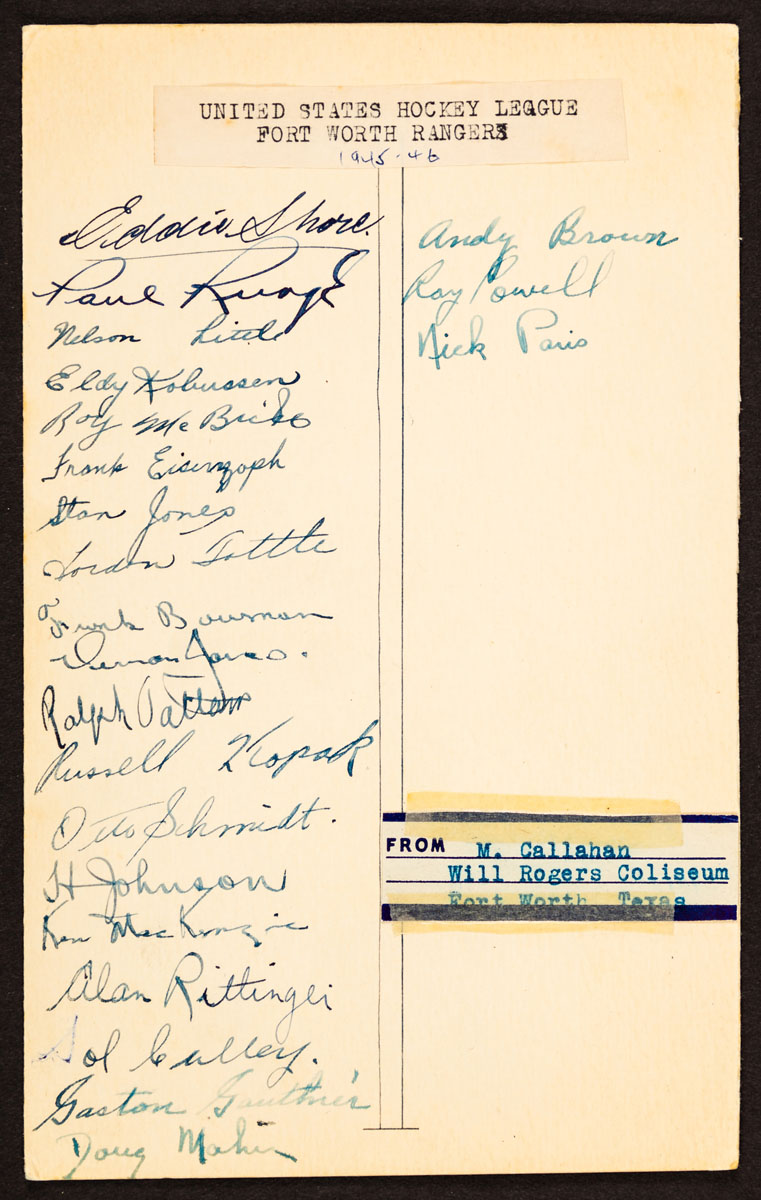 UNITED STATES HOCKEY LEAGUE
FORT WORTH RANGERS
1945-46
Eddie Shore.
Paul Runge
Nelson Little
Eldy Kobussen
Roy McBride
Frank Eisenzoph
Stan Jones
Lorden Tottle
Frank Bowman
Vernon Jones.
Ralph Pattern
Russell Kopak
Otto Schmidt.
H Johnson
Ken MacKenzie
Alan Rittinger
Sol Culley.
Gaston Gauthier
Doug
Andy Brown
Ray Powell
Nick Paris
FROM M. Callahan
Will Rogers Coliseum
Fort Worth, Texas